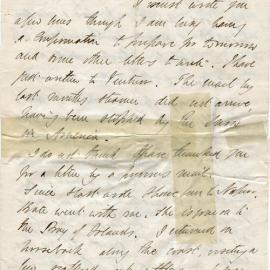 I must write you
a few lines though I am busy having
a Confirmation to prepare for tomorrow
and some other letters to write. I have
just written to Venturn. The mail by
last months steamer did not arrive
having been stopped by the snow
in America.
I do not think I have thanked you
for a letter by a previous mail.
Since I last wrote I have been to Napier.
Kate went with me. She is gone on to
the Bay of Islands. I returned on
horseback along the coast, visiting a
few scattered